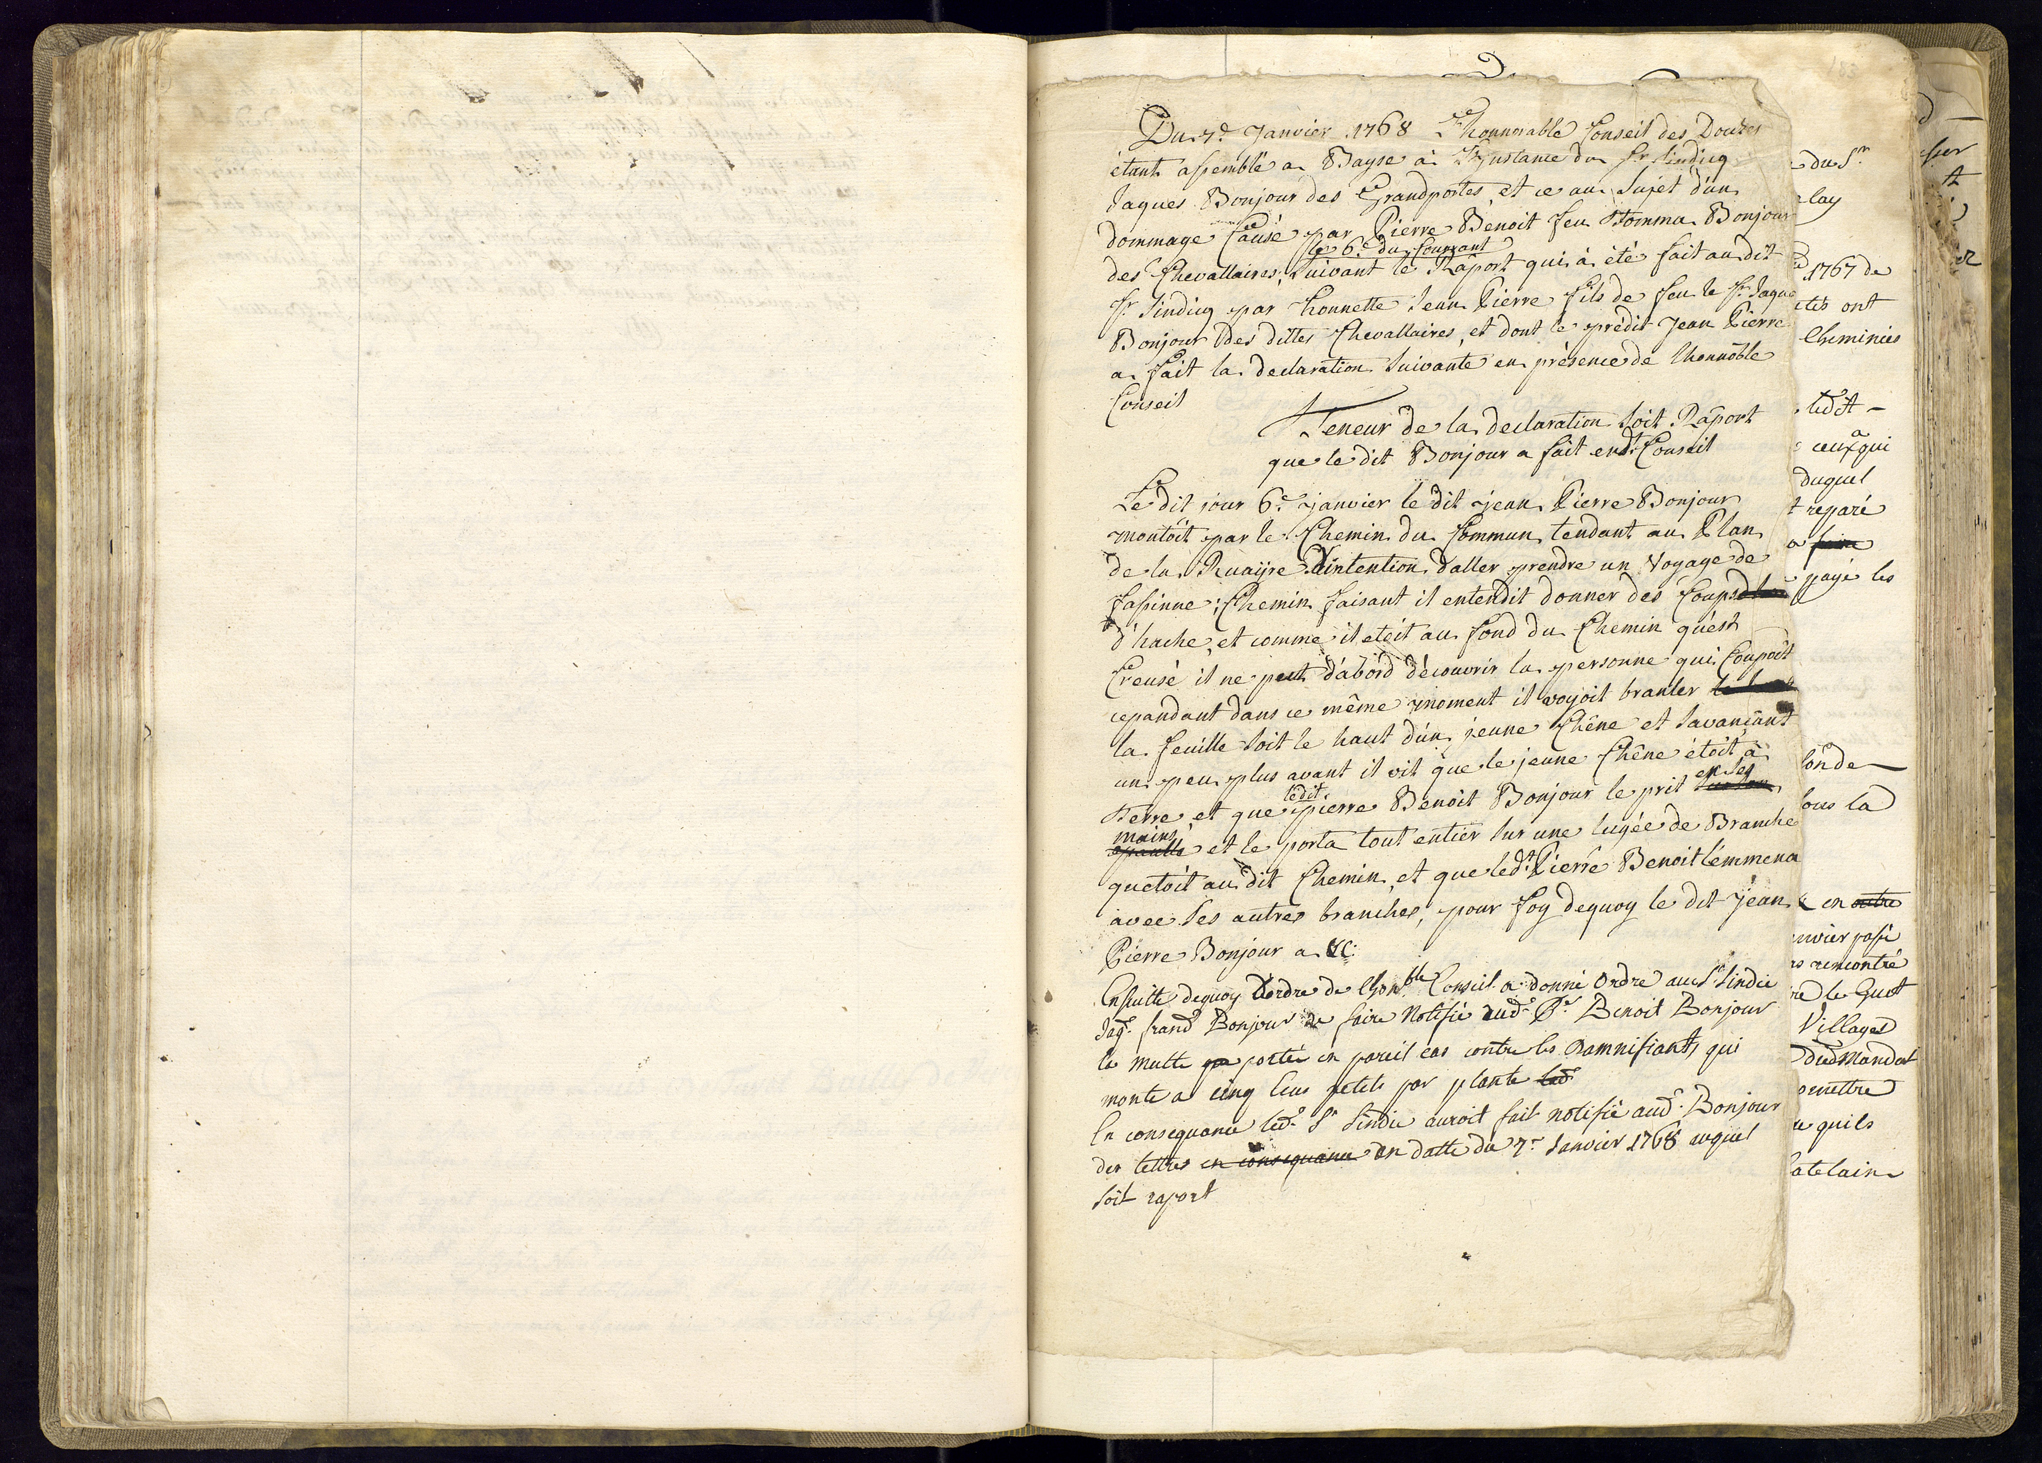 Du 7.e Janvier 1768 L'honnorable Conseil des Douzes
étant assemblé a Baÿse à L'Jnstance du Sr. Sindicq
Jaques Bonjour des Grandportes, et ce au Sujet d'un
dommage Causé par Pierre Benoit feu Homma Bonjour
le 6.e du Courrant
des Chevallaires, Suivant le Raport qui à été fait au dit
Sr. Sindicq par Lhonnette Jean Pierre fils de feu le Sr. Jaque
Bonjour des dittes Chevallaires, et dont le prédit Jean Pierre
a fait la declaration Suivante en présence de Lhonnoble
Conseil
Teneur de la declaration Soit Raport
que le dit Bonjour a fait end.t Conseil
Le dit jour 6.e janvier le dit jean Pierre Bonjour
montoit par le Chemin du Commun tendant au Plan
de la Ruaÿre d'intention d'aller prendre un Voyage de
fassinne; Chemin faisant il entendit donner des Coups
d'hache, et comme il etoit au fond du Chemin qu'est
Creusé il ne peut d'abord découvrir la personne qui Coupoit
cepandant dans ce même moment il voyoit branler
la feuille Soit le haut d'un jeune Chêne et Savançant
un peu plus avant il vit que le jeune Chêne étoit à
ledit en Ses
Terre, et que pierre Benoit Bonjour le prit
mains
epaulle et le porta tout entier Sur une lugée de Branche
quetoit au dit Chemin, et que led.t Pierre Benoit lémmena
avec Ses autres branches, pour foy dequoy le dit Jean
Pierre Bonjour a &c:
Ensuitte dequoy Lordre de Lhon.ble Conseil a donné Ordre au Sr. Sindic
Jaq.e frand Bonjour de faire Notifié aud.t P.re Benoit Bonjour
la multe que portée en pareil cas contre les Damnifiants qui
monte a cinq Cens petits par plante led.t
En consequance led.t Sr Sindic auroit fait notifié aud.t Bonjour
des lettres en consequance en datte du 7.e Janvier 1768 auquel
Soit raport
du Sr.
1767 de
ont
Cheminées
ledit
ceux à qui
duquel
reparé
faire
payé les
Sous la
en outre
passé
rencontré
le Guet
Villages
dud.t Mandat
quils